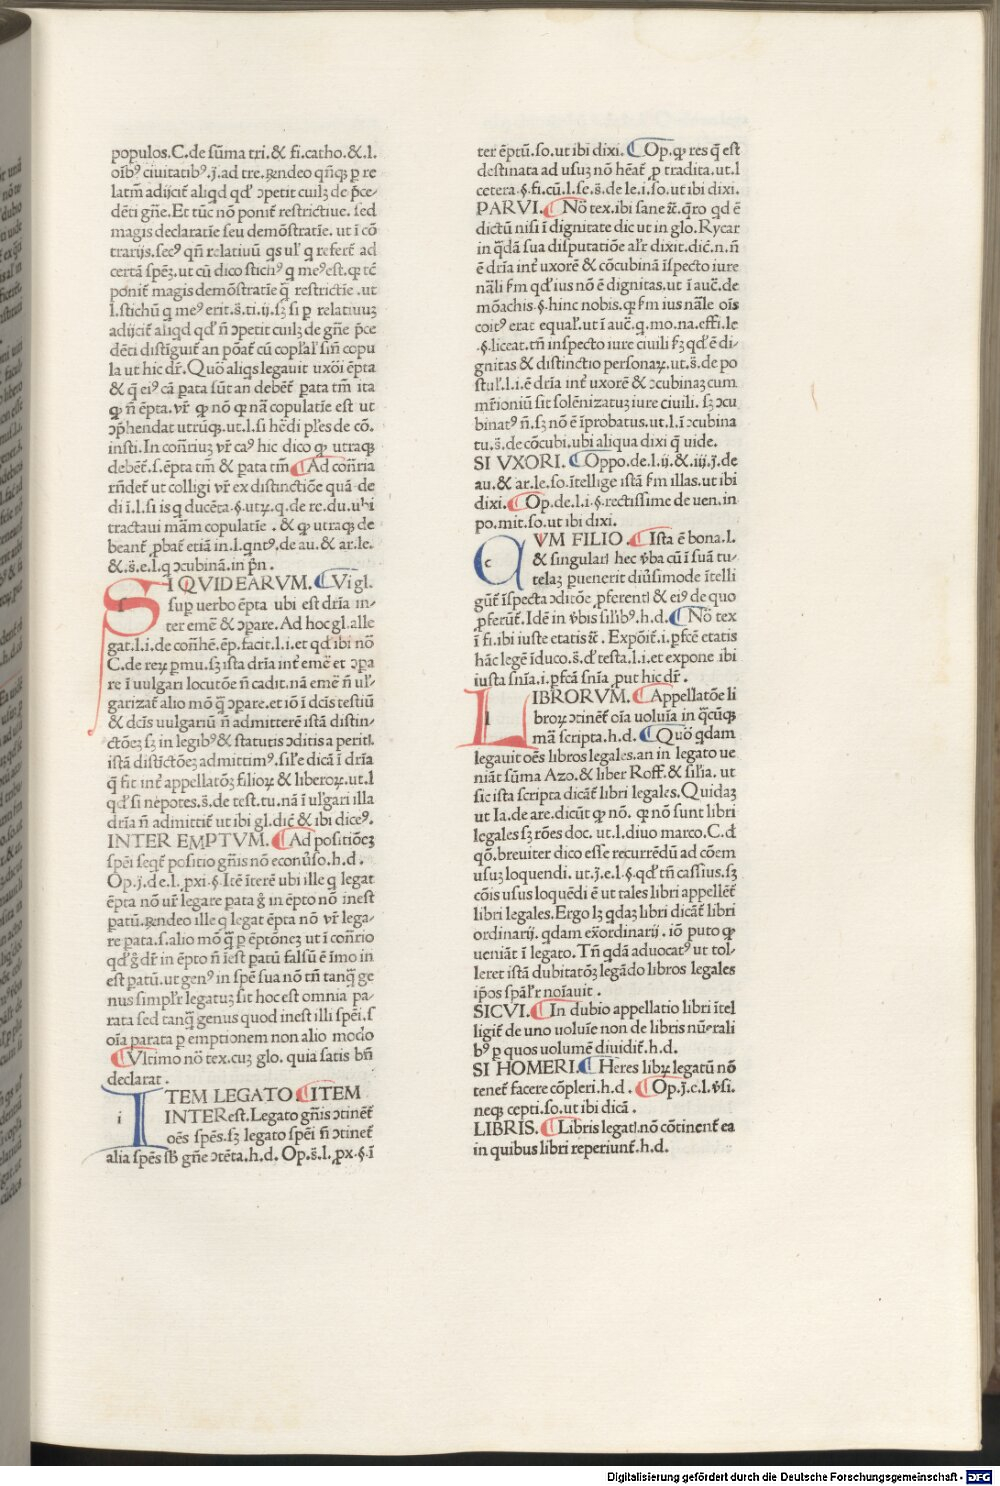 populos.C.de sūma tri.& fi.catho.&.l.
oībꝰ ciuitatibꝰ.j̄.ad tre.Rndeo qñqꝫ p re
latm̄ adijcit̄ aliqd qđ ↄpetit cuilꝫ de p̄ce-
dēti gn̄e.Et tūc nō ponit̄ restrictiue. sed
magis declaratīe seu demōstratīe. ut ī cō
trarijs.secꝰ qn̄ relatiuū qs ul̛ q refert̄ ad
certā spēꝫ.ut cū dico stichꝰ q meꝰest.qꝛ tē
ponit̄ magis demōstratīe q̄ restrictīe .ut
l.stichū q meꝰ erit.s̄.ti.ij.sꝫ si p relatiuuꝫ
adijcit̄ aliqd qđ n̄ ↄpetit cuilꝫ de gn̄e p̄ce
dēti distīguit̄ an pōat̄ cū copl̛al̛ siñ copu
la ut hic dr̄. Quō aliqs legauit uxōi ēpta
& q̄ eiꝰ cā pata sūt an debēt̄ pata tm̄ ita
ꝙ n̄ ēpta.vr̄ ꝙ nō qꝛ nā copulatīe est ut
ↄp̄hendat utrūqꝫ.ut.l.si hēdi pl̛es de cō.
insti.In con̄riuꝫ vr̄ caꝰ hic dico ꝙ utraqꝫ
debēt̄.s.ēpta tm̄ & pata tm̄ Ad con̄ria
rn̄det̄ ut colligi vr̄ ex distinctiōe quā de
di ī.l.si is q ducēta.§.utꝝ.q.de re.du.ubi
tractaui mām copulatīe . & ꝙ utraqꝫ de
beant̄ ꝓbat̄ etiā in.l.qntꝰ.de au.& ar.le.
&.s̄.e.l.q ↄcubinā.in p̄n .
SI QVID EARVM. Vi gl.
sup uerbo ēpta ubi est dr̄ia in-
ter emē & ↄpare. Ad hoc gl.alle
gat.l.i.de con̄hē.ēp.facit.l.i.et qđ ibi nō
C.de reꝝ pmu.sꝫ ista dr̄ia int̄ emē et ↄpa
re ī uulgari locutōe n̄ cadit.nā emē n̄ ul̛-
garizat̄ alio mō q̄ ↄpare.et iō ī dc̄is testiū
& dc̄is uulgariū n̄ admitterē istā distin-
ctōeꝫ sꝫ in legibꝰ& statutis ↄditis a peritl.
istā distīctōeꝫ admittimꝰ.sil̛e dicā ī dr̄ia
q̄ fit int̄ appellatōꝫ filioꝝ & liberoꝝ.ut.l
qđ si nepotes.s̄.de test.tu.nā ī ul̛gari illa
dr̄ia n̄ admittit̄ ut ibi gl.dic̄ & ibi diceꝰ.
INTER EMPTVM. Ad positiōeꝫ
spēi seqt̄ positio gn̄is nō econ̄ūso.h.d .
Op.j̄.de.l.ꝓxi.§.Itē īterē ubi ille q legat
ēpta nō ur̄ legare pata ḡ in ēpto nō inest
patū.Rndeo ille q legat ēpta nō vr̄ lega-
re pata.s.alio mō q̄ p ēptōneꝫ ut ī con̄rio
qđ ḡ dr̄ in ēpto n̄ īest patū falsū ē īmo in
est patū.ut genꝰ in spē sua nō tn̄ tanq̄ ge
nus simpl̛r legatuꝫ sit hoc est omnia pa-
rata sed tanq̄ genus quod inest illi spēi.s
oīa parata p emptionem non alio modo
Vltimo nō tex.cuꝫ glo. quia satis bn̄
declarat .
ITEM LEGATO ITEM
INTERest.Legato gn̄is ↄtinēt̄
oēs spēs.sꝫ legato spēi n̄ ↄtinet̄
alia spēs sb̄ gn̄e ↄtēta.h.d. Op.s̄.l.ꝓx.§.ī
ter ēptū.so.ut ibi dixi. Op.ꝙ res q̄ est
destinata ad usuꝫ nō hēat̄ ꝓ tradita.ut.l
cetera.§.fi.cū.l.se.s̄.de le.i.so.ut ibi dixi.
PARVI. Nō tex.ibi sane ⁊c̄.q̄ro qđ ē
dictū nisi ī dignitate dic ut in glo.Rycar
in q̄dā sua disputatiōe al̛r dixit.dic̄.n.n̄
ē dr̄ia int̄ uxorē & cōcubinā īspecto iure
nāli fm qđ ius nō ē dignitas.ut ī auc̄.de
mōachis.§.hinc nobis.qꝛ fm ius nāle oīs
coitꝰ erat equal̛.ut ī auc̄.q.mo.na.effi.le
.§.liceat.tn̄ inspecto iure ciuili sꝫ qđ ē di-
gnitas & distinctio personaꝝ.ut.s̄.de po
stul̛.l.i.ē dr̄ia int̄ uxorē & ↄcubinaꝫ cum
mr̄ioniū sit solēnizatuꝫ iure ciuili. sꝫ ↄcu
binatꝰ n̄.sꝫ nō ē īprobatus.ut.l.ī ↄcubina
tu.s̄.de cōcubi.ubi aliqua dixi q̄ uide.
SI VXORI. Oppo.de.l.ij.&.iij.j̄.de
au.& ar.le.so.ītellige istā fm illas.ut ibi
dixi. Op.de.l.i.§.rectissime de uen.in
po.mit.so.ut ibi dixi.
CVM FILIO . Ista ē bona.l.
& singularl hec v̄ba cū ī suā tu-
telaꝫ puenerit diūsimode ītelli
gūt̄ īspecta ↄditōe ꝓferentl & eiꝰ de quo
ꝓferūt̄.Idē in v̄bis silibꝰ.h.d. Nō tex
ī fi.ibi iuste etatis ⁊c̄ . Expōit̄.i.pfcē etatis
hāc legē īduco.s̄.đ testa.l.i.et expone ibi
iusta sn̄ia.i.pfcā sn̄ia ꝓut hic dr̄ .
LIBRORVM. Appellatōe li
broꝝ ↄtinēt̄ oīa uoluīa in q̄cūqꝫ
mā scripta.h.d. Quō qdam
legauit oēs libros legales.an in legato ue
niāt sūma Azo.& liber Roff.& sil̛ia. ut
sic ista scripta dicāt̄ libri legales.Quidaꝫ
ut Ia.de are.dicūt ꝙ nō. qꝛ nō sunt libri
legales sꝫ rōes doc. ut.l.diuo marco.C.đ
qō.breuiter dico esse recurrēdū ad cōem
usuꝫ loquendi. ut.j̄.e.l.§.qđ tn̄ cassius.sꝫ
cōis usus loquēdi ē ut tales libri appellēt̄
libri legales.Ergo lꝫ qdaꝫ libri dicāt̄ libri
ordinarij. qdam ex̄ordinarij . iō puto ꝙ
ueniāt ī legato. Tn̄ qdā aduocatꝰ ut tol-
leret istā dubitatōꝫ legādo libros legales
ip̄os spāl̛r noīauit .
SICVI. In dubio appellatio libri ītel
ligit̄ de uno uoluīe non de libris nūerali
bꝰ p quos uolumē diuidit̄.h.d.
SI HOMERI. Heres libꝝ legatū nō
tenet̄ facere cōpleri.h.d . Op.j̄.c.l.v̄si.
neqꝫ cepti.so.ut ibi dicā .
LIBRIS. Libris legatl.nō cōtinent̄ ea
in quibus libri reperiunt̄.h.d.
Digitalisierung gefördert durch die Deutsche Forschungsgemeinschaft - DFG